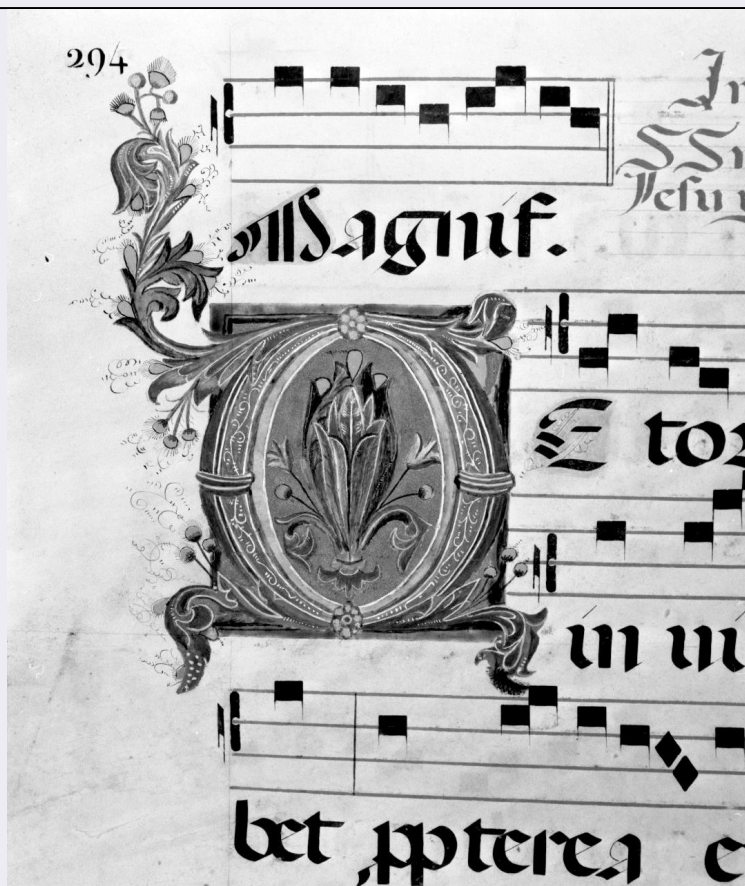 294
In
SS
Jesu
Magnif.
OE tor
in m
bet ppterea e